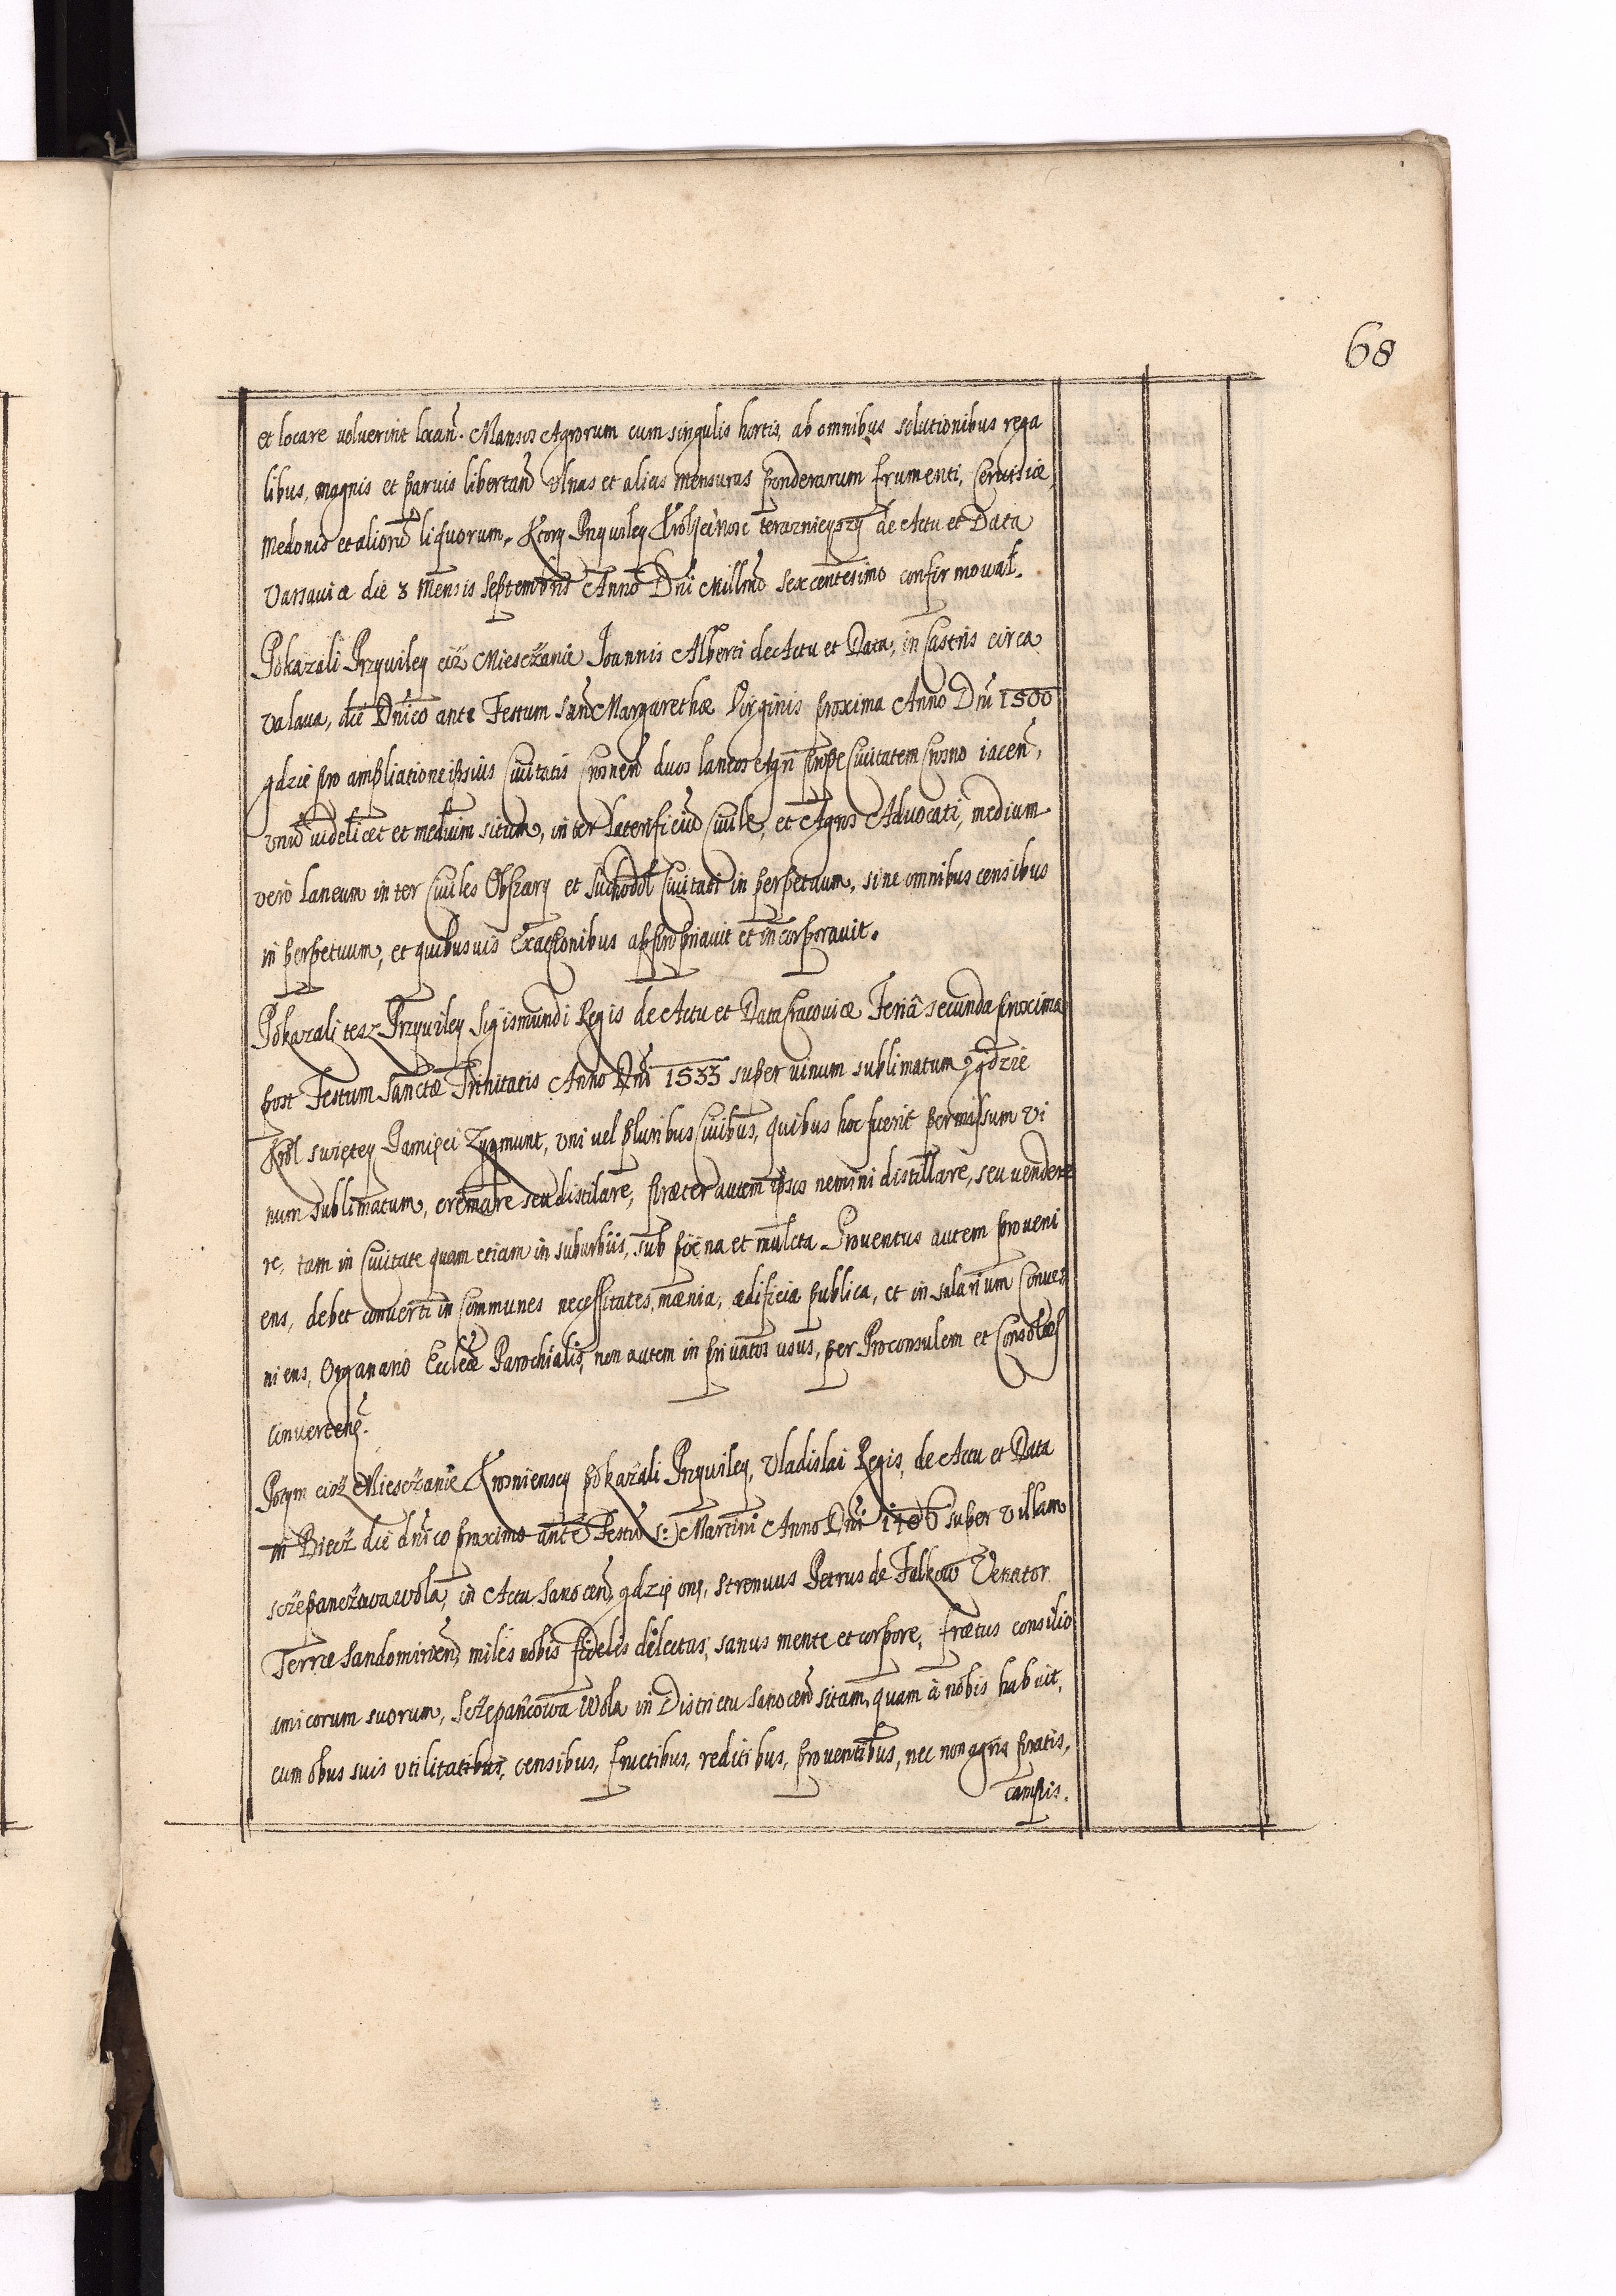 68
et locare voluerint locan̄. Mansos Agrorum cum singulis hortis, ab omnibus solutionibus rega
libus, magnis et parvis libertan̄ Ulnas et alias mensuras ponderarum frumenti, Cervisiæ,
Medonis et aliorū liquorum. Ktory Przywiley Krol Je͞o Mosc terazniejszy de Actu et Data
Varsaviæ die 8 Mensis Septembris Anno Dni Millmo Sexcentesimo confirmował.
Pokazali Przywiley ciż Miesczanie Joannis Alberti de Actu et Data, in Castris circa
Valava, die Dnico ante Festum San̄ Margarethæ Virginis proxima Anno Dni 1500
gdzie pro ampliatione ipsius Civitatis Crosnen̄ duos laneos Agri prope Civitatem Crosno iacen̄,
vnū videlicet et medium situm, inter Laterificiū Civile, et Agros Advocati, medium
vero laneum inter Civiles Obszary et Suchodol Civitati in perpetuum, sine omnibus censibus
in perpetuum, et quibusvis Exactionibus appropriavit et incorporavit.
Pokazali tesz Przywiley Sigismundi Regis de Actu et Data Cracoviæ Feriâ secunda proxima
post Festum Sanctæ Trinitatis Anno Dni 1533 super vinum sublimatum, gdzie
Krol swiętey Pamięci Zygmunt, vni vel pluribus Civibus, quibus hoc fuerit permissum vi
num sublimatum, cremare seu distilare, præter autem ipsos nemini distillare, seu vendere
re, tam in Civitate quam etiam in suburbiis, sub pœna et mulcta Proventus autem proveni
ens, debet converti in Communes necessitates, mænia, ædificia publica, et in salarium Conve
niens, Organario Ecclæ Parochialis, non autem in privatos vsus, per Proconsulem et Consoles
convertens.
Potym ciż Miesczanie Krosniensey pokazali Przywiley, Vladislai Regis, de Actu et Data
in Biecz die dnico proximo ante Festū S: Martini Anno Dni super Villam
sczepanczowa wola, in Actu Sanocen̄, gdzie ony, strenuus Petrus de Falkow Venator
Terræ Sandomirien̄, miles nobis fidelis dilectus, sanus mente et corpore, frætus consilio
amicorum suorum, Sczepancowa Wola in Districtu Sanocen̄ sitam, quam à nobis habuit,
cum obus suis vtilitatibus, censibus, fructibus, reditibus, proventibus, nec non agris pratis,
campis.